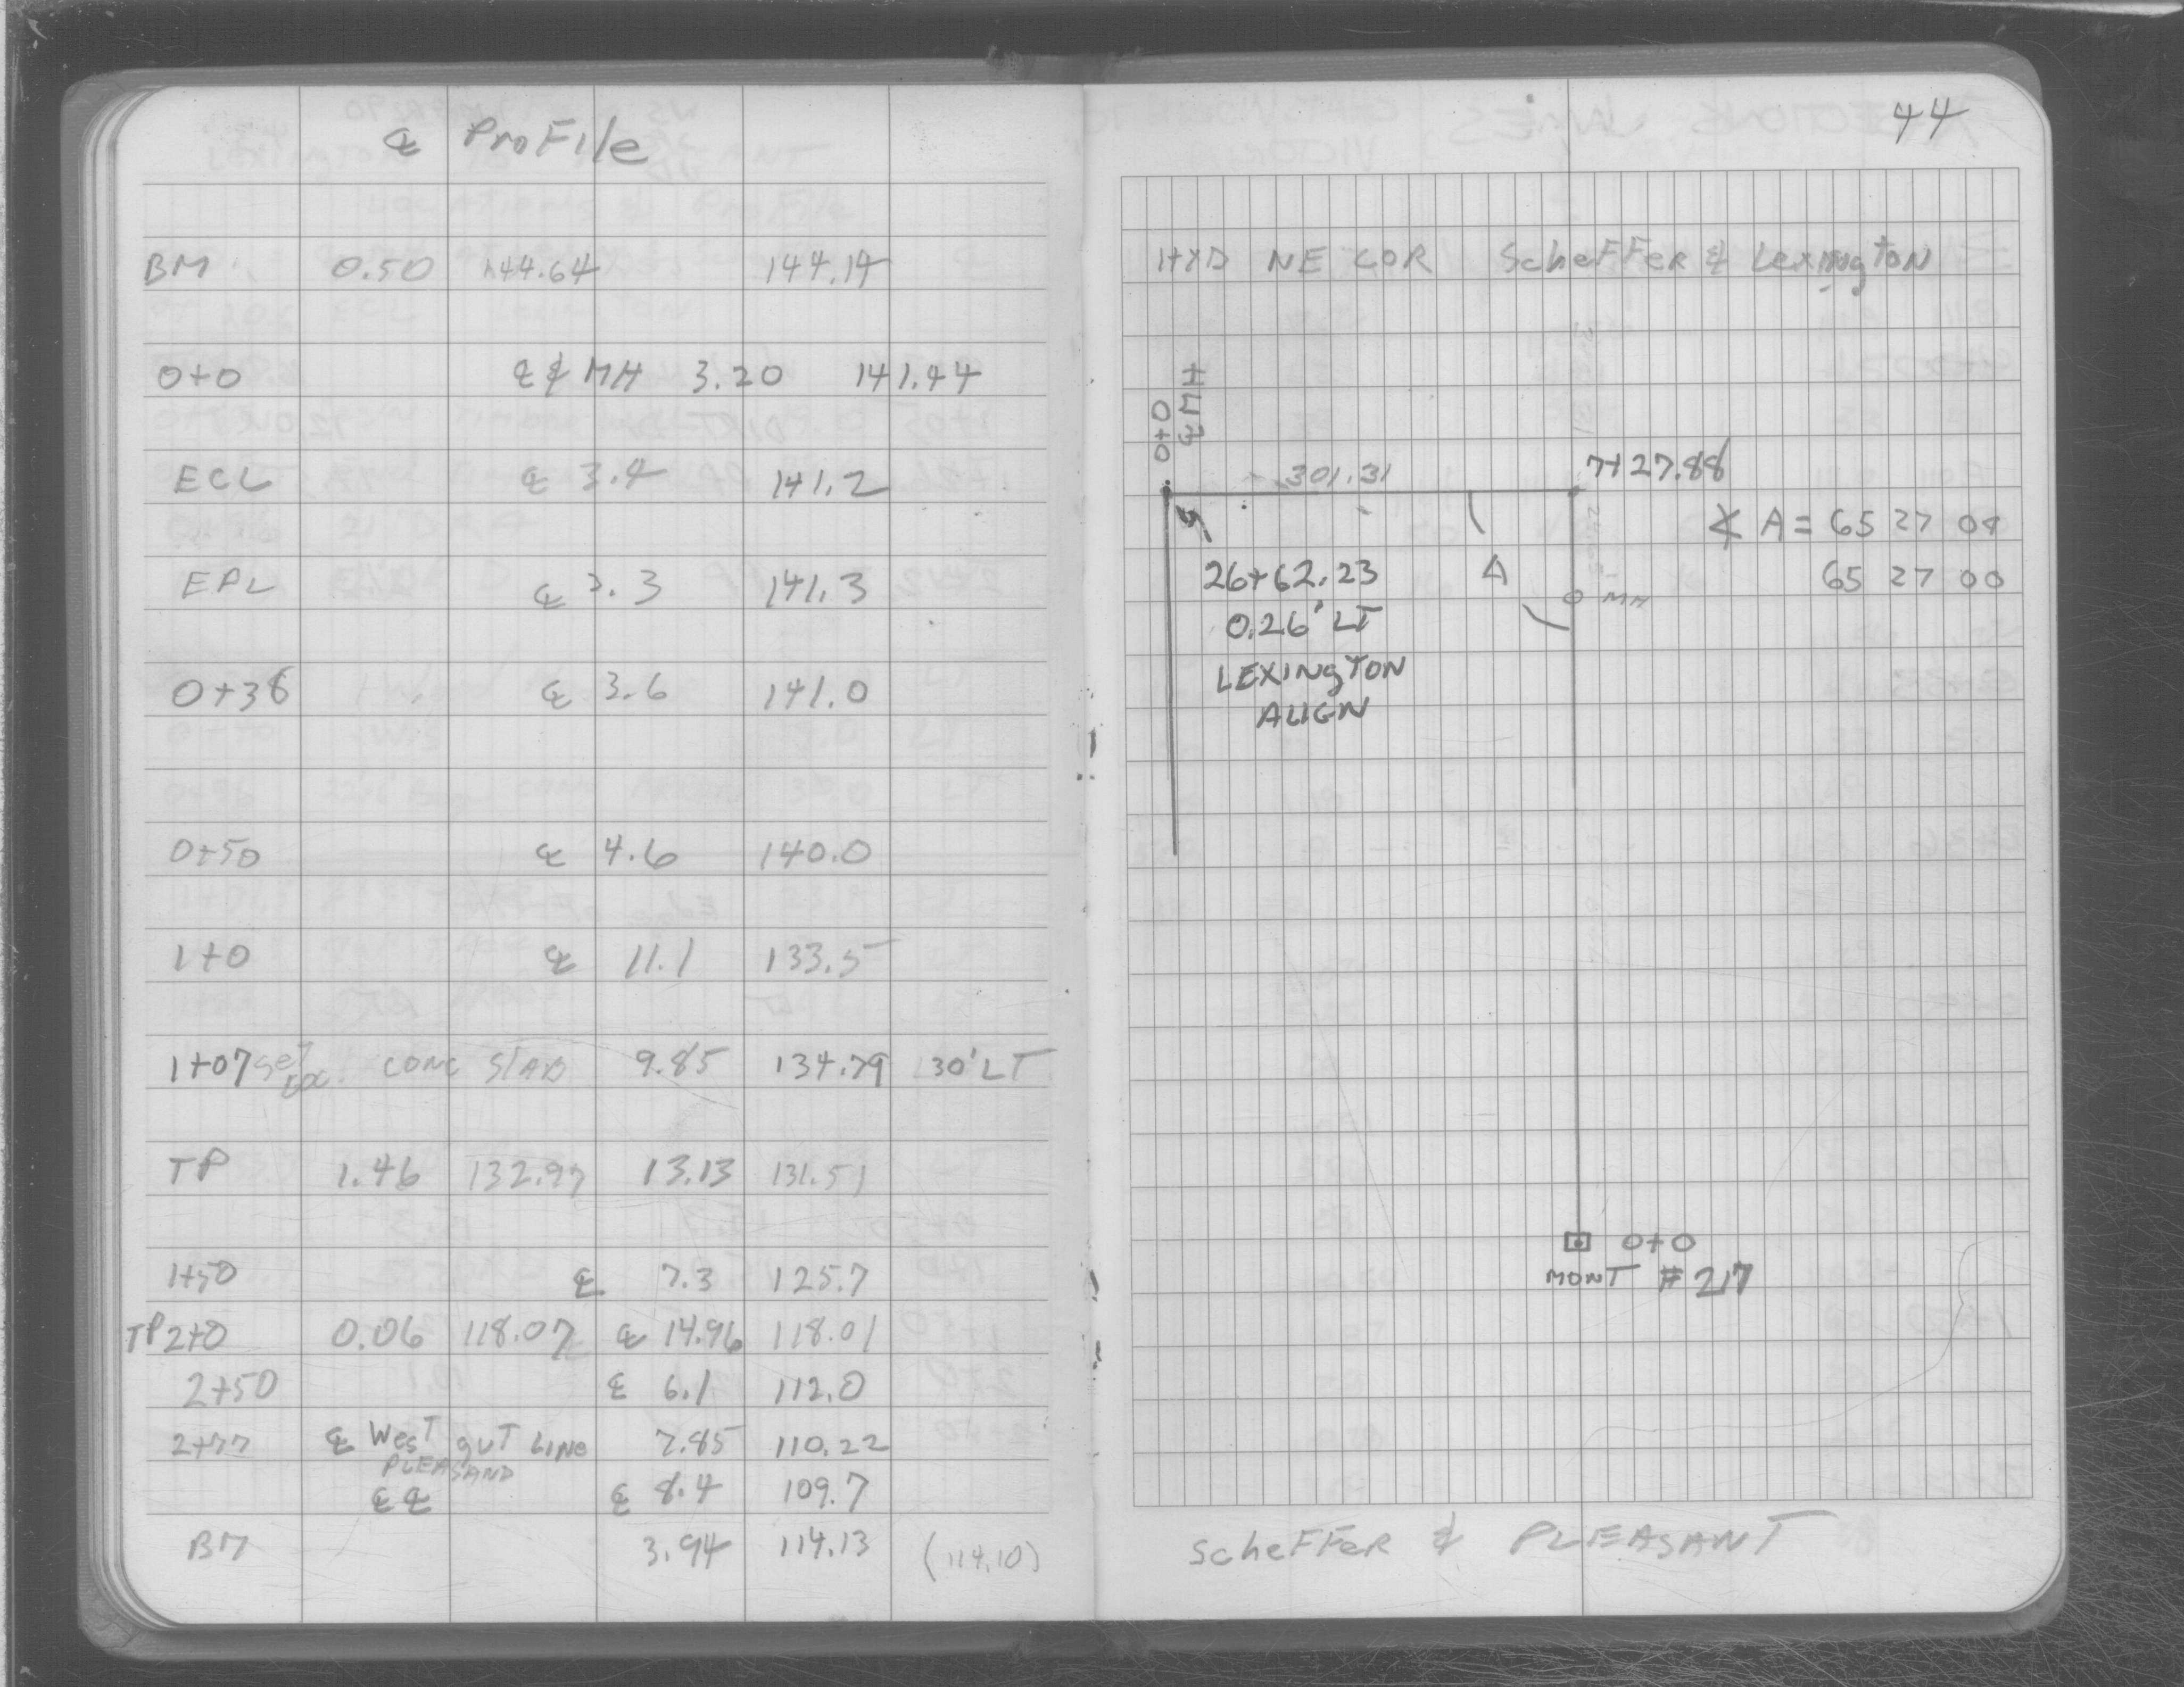 ℄ ProFile
BM 0.50 144.64 144.14
0+0 ℄ & MH 3.20 141.44
ECL ℄ 3.4 141.2
EPL ℄ 3.3 141.3
0+38 ℄ 3.6 141.0
0+50 ℄ 4.6 140.0
1+0 ℄ 11.1 133.5
1+07 CONC SlAB 9.85 134.79 30' LT
TP 1.46 132.97 13.13 131.51
1+50 ℄ 7.3 125.7
TP 2+0 0.06 118.07 ℄ 14.96 118.01
2+50 ℄ 6.1 112.0
2+77 ℄ WesT guT LiNe 7.85 110.22
PLEASAND
℄ ℄ ℄ 8.4 109.7
BM 3.94 114.13 (114.10)
44
HYD NE COR ScheFFeR & LexiNgtoN
0+0
℄ MH
301.31
7+27.88
∠ A = 65 27 04
65 27 00
26+62.23
0.26' LT
LEXINgTON
ALIGN
A
MH
0+0
MONT #217
ScheFFeR & PLEASANT